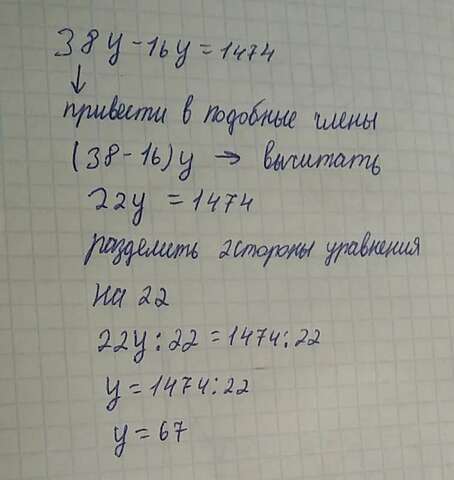 38y-16y=1474
↓
привести в подобные члены
(38-16)y → вычитать
22y = 1474
разделить 2стороны уравнения
на 22
22y:22=1474:22
y=1474:22
y=67